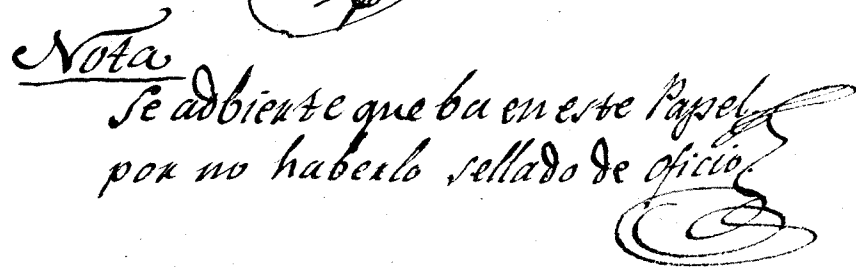 Nota
Se adbierte que ba en este Papel
por no haberlo sellado de oficio.